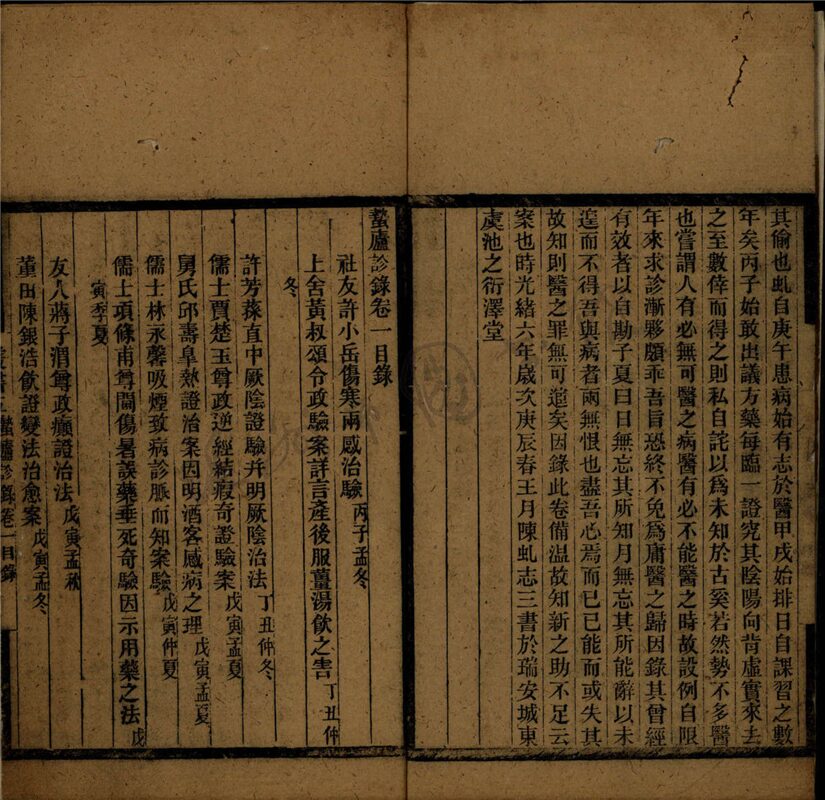 其偷也虬自庚午患病始有志於醫甲戌始排日自課習之數
年矣丙子始敢出議方藥每臨一證究其陰陽向背虛實來去
之至數倖而得之則私自詫以爲未知於古奚若然勢不多醫
也嘗謂人有必無可醫之病醫有必不能醫之時故設例自限
年來求診漸夥頗乖吾旨恐終不免爲庸醫之歸因錄其曾經
有效者以自勘子夏曰日無忘其所知月無忘其所能辭以未
遑而不得吾與病者兩無恨也盡吾心焉而已已能而或失其
故知則醫之罪無可逭矣因錄此卷備溫故知新之助不足云
案也時光緒六年歲次庚辰春王月陳虬志三書於瑞安城東
虞池之衍澤堂
蟄廬診錄卷一目錄
社友許小岳傷寒兩感治驗 丙子孟冬
上舍黃叔頌令政驗案詳言產後服薑湯飲之害 丁丑仲
冬
許芳蓀直中厥陰證驗并明厥陰治法 丁丑仲冬
儒士賈楚玉尊政逆經結瘕奇證驗案 戊寅孟夏
舅氏邱壽皐熱證治案因明酒客感病之理 戊寅孟夏
儒士林永馨吸煙致病診脈而知案驗 戊寅仲夏
儒士項條甫尊閫傷暑誤藥垂死奇驗因示用藥之法 戊
寅季夏
友人蔣子渭尊政癲證治法 戊寅孟秋
董田陳銀浩飲證變法治愈案 戊寅孟冬
蟄廬診錄卷一目錄